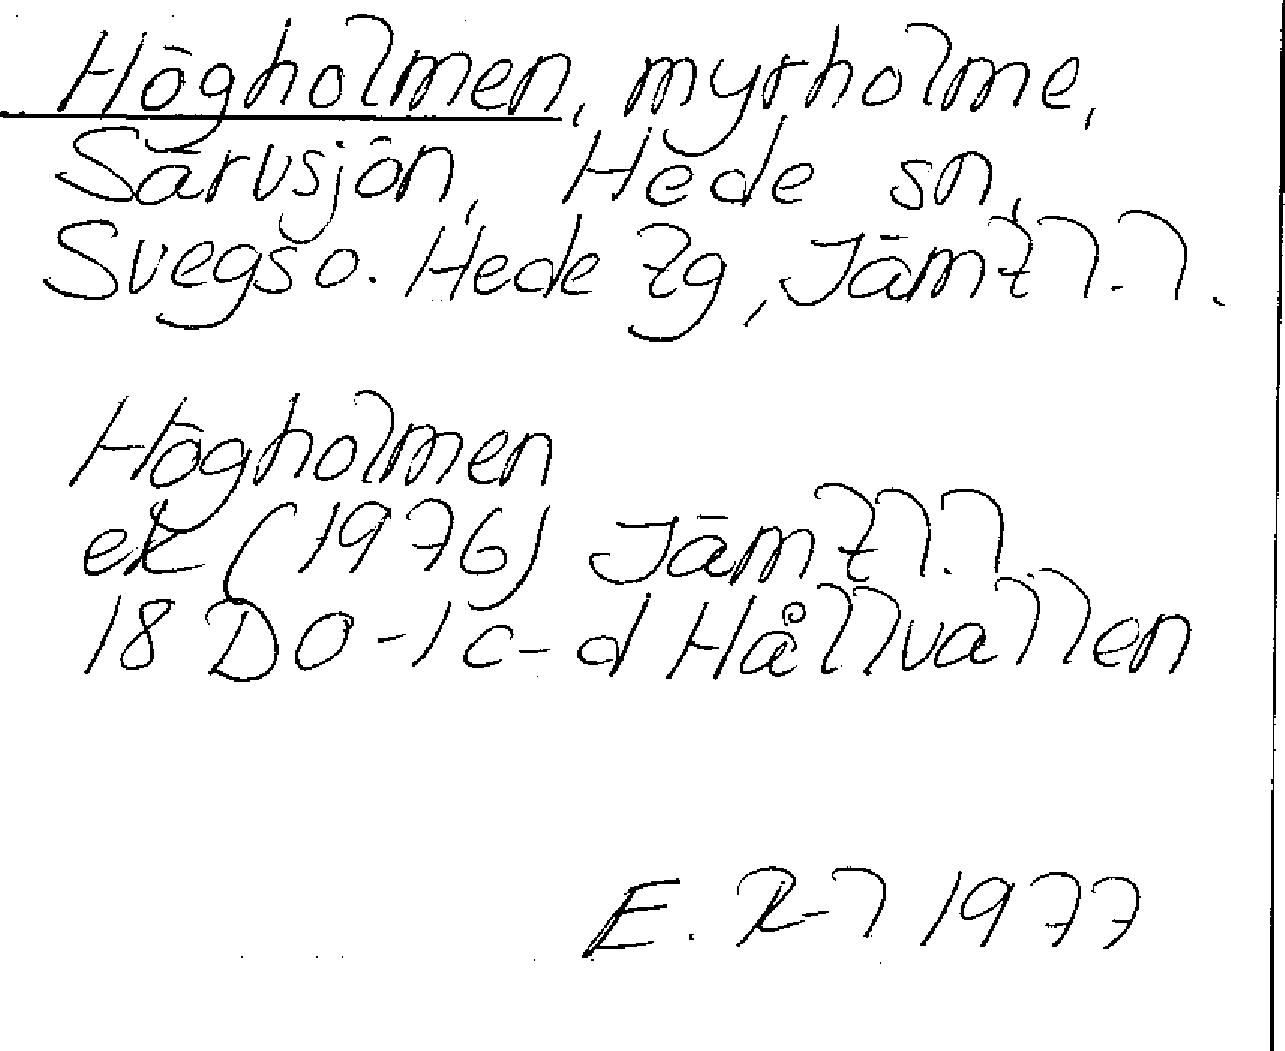 Högholmen, myrholme,
Särvsjön, Hede sn,
Svegs o. Hede tg, Jämtl.l.
Högholmen
ek (1976) Jämtl.l.
18 D 0-1 c-d Hållvallen
E. R-l 1977